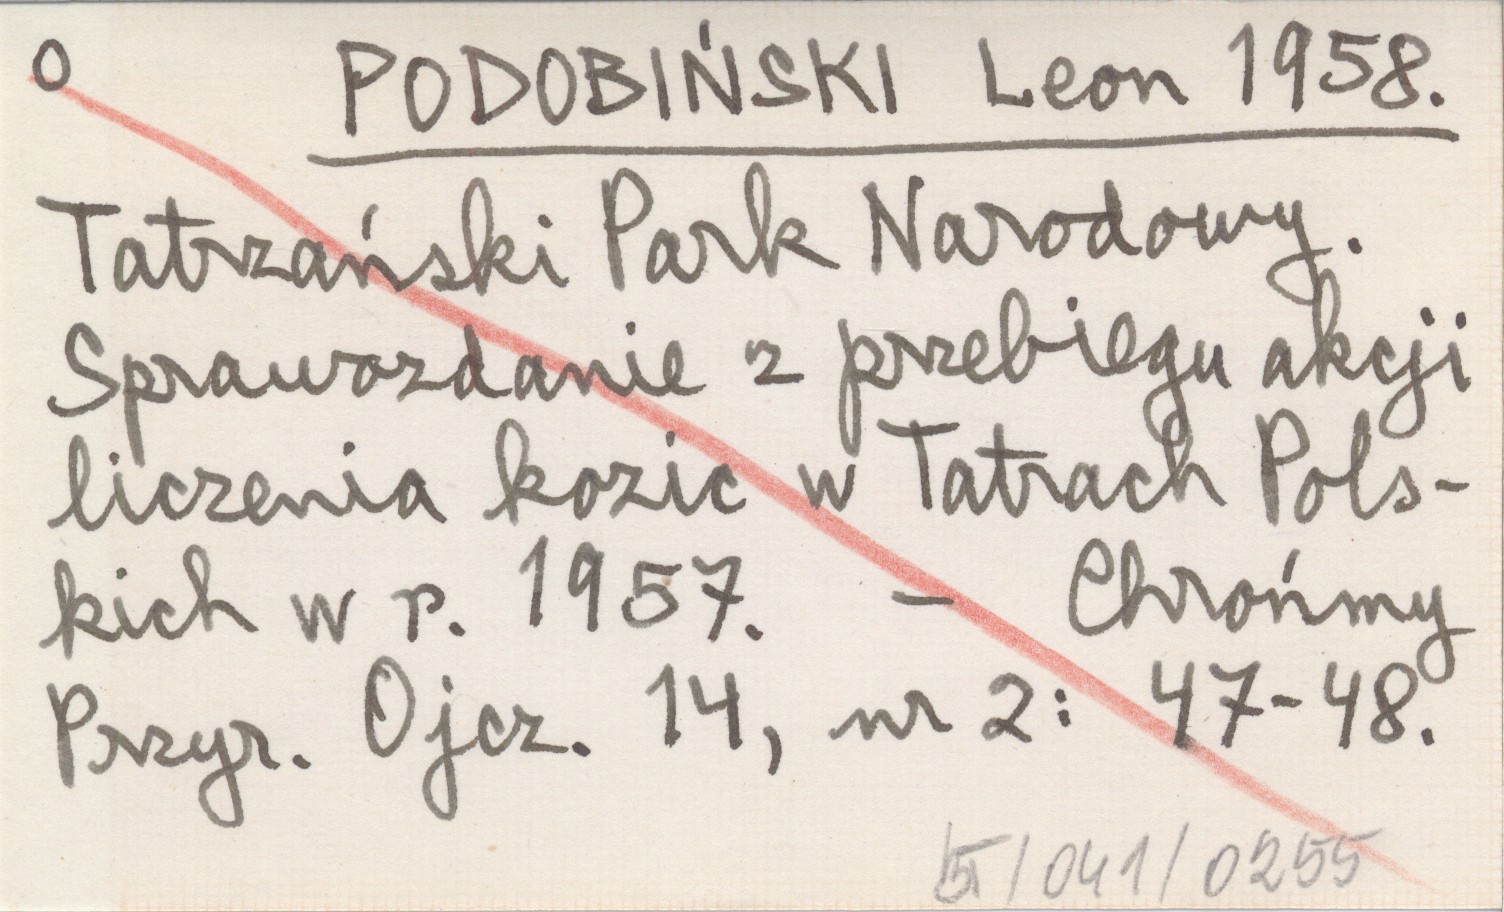 O PODOBIŃSKI Leon 1958.
Tatrzański Park Narodowy.
Sprawozdanie z przebiegu akcji
liczenia kozic w Tatrach Pols-
kich w r. 1957. – Chrońmy
Przyr. Ojcz. 14, nr 2: 47-48.
5/041/0255